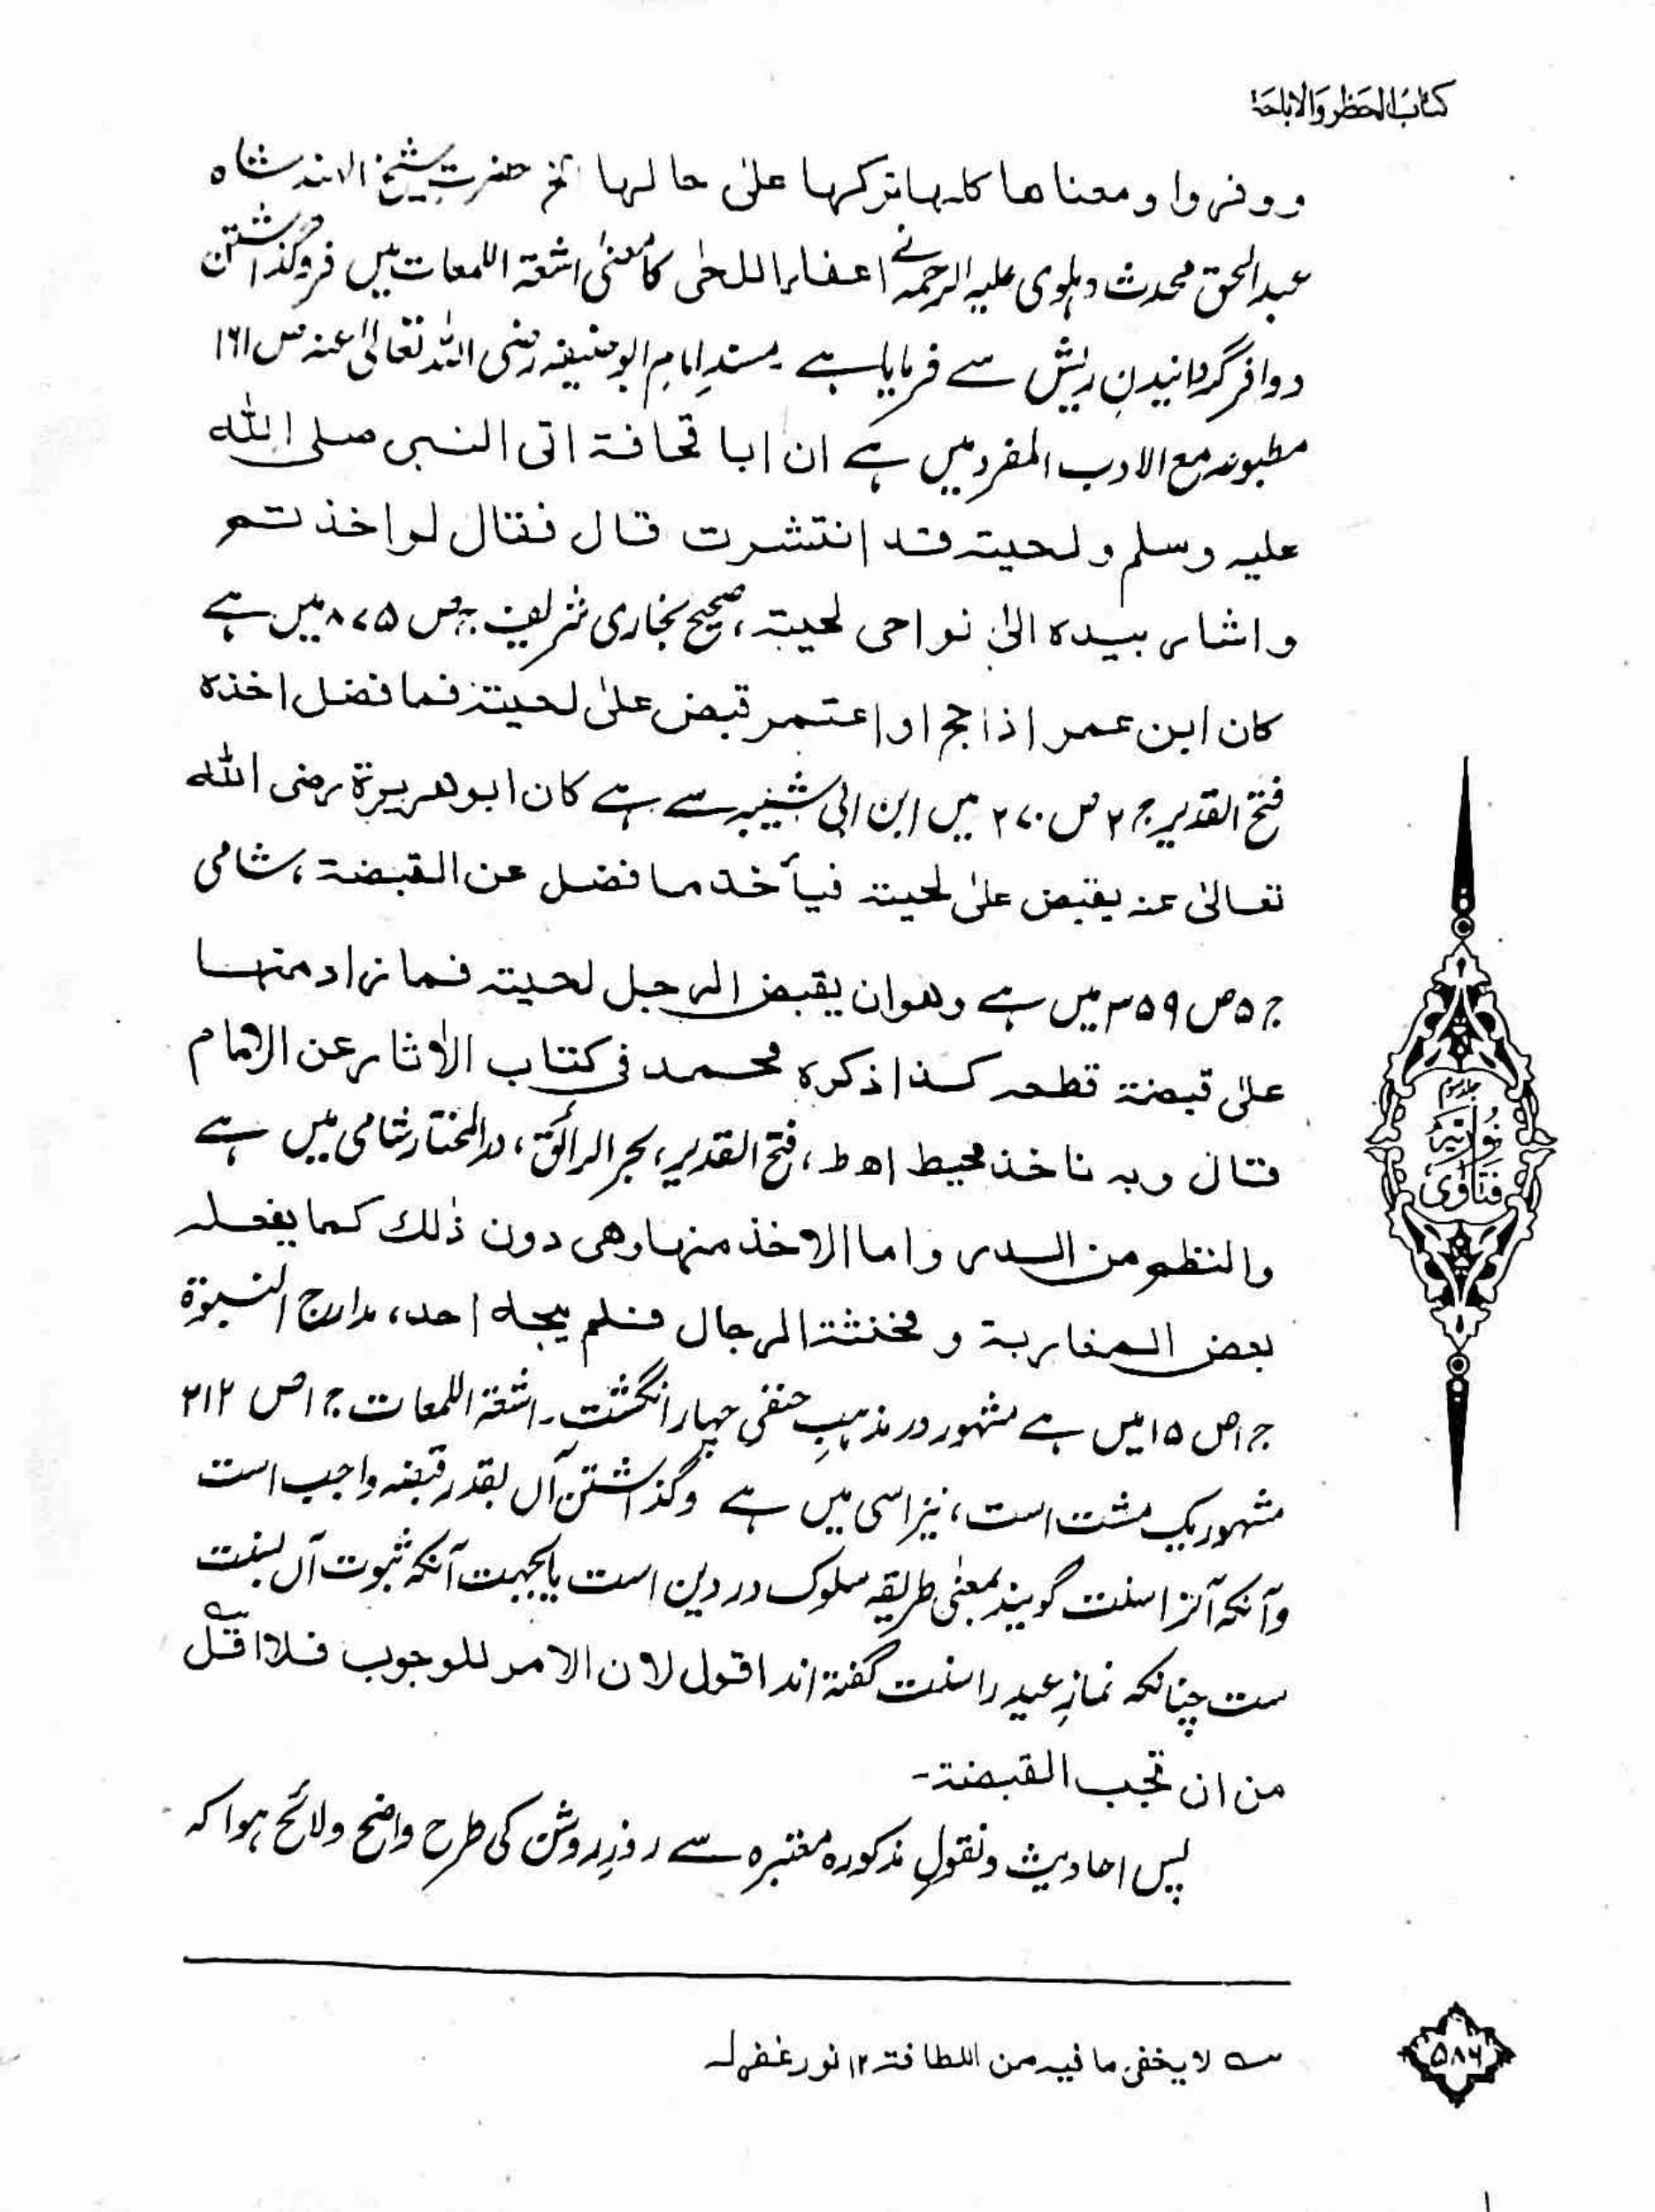 کتاب الحظر والاباحۃ
ووفروا ومعناها کلها ترکها علیٰ حالها الخ حضرت شیخ الہند شاہ
عبدالحق محدث دہلوی علیہ الرحمہ نے اعفاء اللحی کا معنیٰ اشعۃ اللمعات میں فروگذاشتن
و وافر گردانیدنِ ریش سے فرمایا ہے ۔ مسندِ امام ابوحنیفہ رضی اللہ تعالیٰ عنہ ص ۱۶۱
مطبوعہ مع الادب المفرد میں ہے ان ابا قحافۃ اتی النبی صلی اللہ
علیہ وسلم ولحیتہ قد انتشرت قال فقال لو اخذتم
واشار بیدہ الیٰ نواحی لحیتہ، صحیح بخاری شریف ج ص ۸۷۵ میں ہے
کان ابن عمر اذا حج او اعتمر قبض علیٰ لحیتہ فما فضل اخذہ
فتح القدیر ج ۲ ص ۲۷۰ میں ابن ابی شیبہ سے ہے کان ابوھریرۃ رضی اللہ
تعالیٰ عنہ یقبض علیٰ لحیتہ فیأخذ ما فضل عن القبضۃ، شامی
ج ۵ ص ۳۵۹ میں ہے وھو ان یقبض الرجل لحیتہ فما زاد منھا
علیٰ قبضۃ قطعہ کذا ذکرہ محمد فی کتاب الاٰثار عن الامام
قال وبہ ناخذ محیط اھ ط، فتح القدیر، بحر الرائق، درالمختار شامی میں ہے
والنظم من الدر واما الاخذ منھا وھی دون ذٰلک کما یفعلہ
بعض المغاربۃ و مخنثۃ الرجال فلم یبحہ احد، مدارج النبوۃ
ج ۱ ص ۱۵ میں ہے مشہور در مذہبِ حنفی چہار انگشت ۔ اشعۃ اللمعات ج ۱ ص ۲۱۲
مشہور یک مشت است، نیز اسی میں ہے وگذاشتن آں بقدر قبضہ واجب است
وآنکہ آنرا سنت گویند بمعنیٰ طریقہ سلوک در دین است یا بجہت آنکہ ثبوت آں بسنت
ست چنانکہ نمازِ عید را سنت گفتہ اند اقول لان الامر للوجوب فلا اقل
من ان تجب القبضۃ۔
پس احادیث ونقولِ مذکورہ معتبرہ سے روزِ روشن کی طرح واضح ولائح ہوا کہ
لا یخفی ما فیہ من اللطافۃ ۱۲ نور غفرلہ
جلد سوم
فتاوٰی نوریہ
۵۸۶